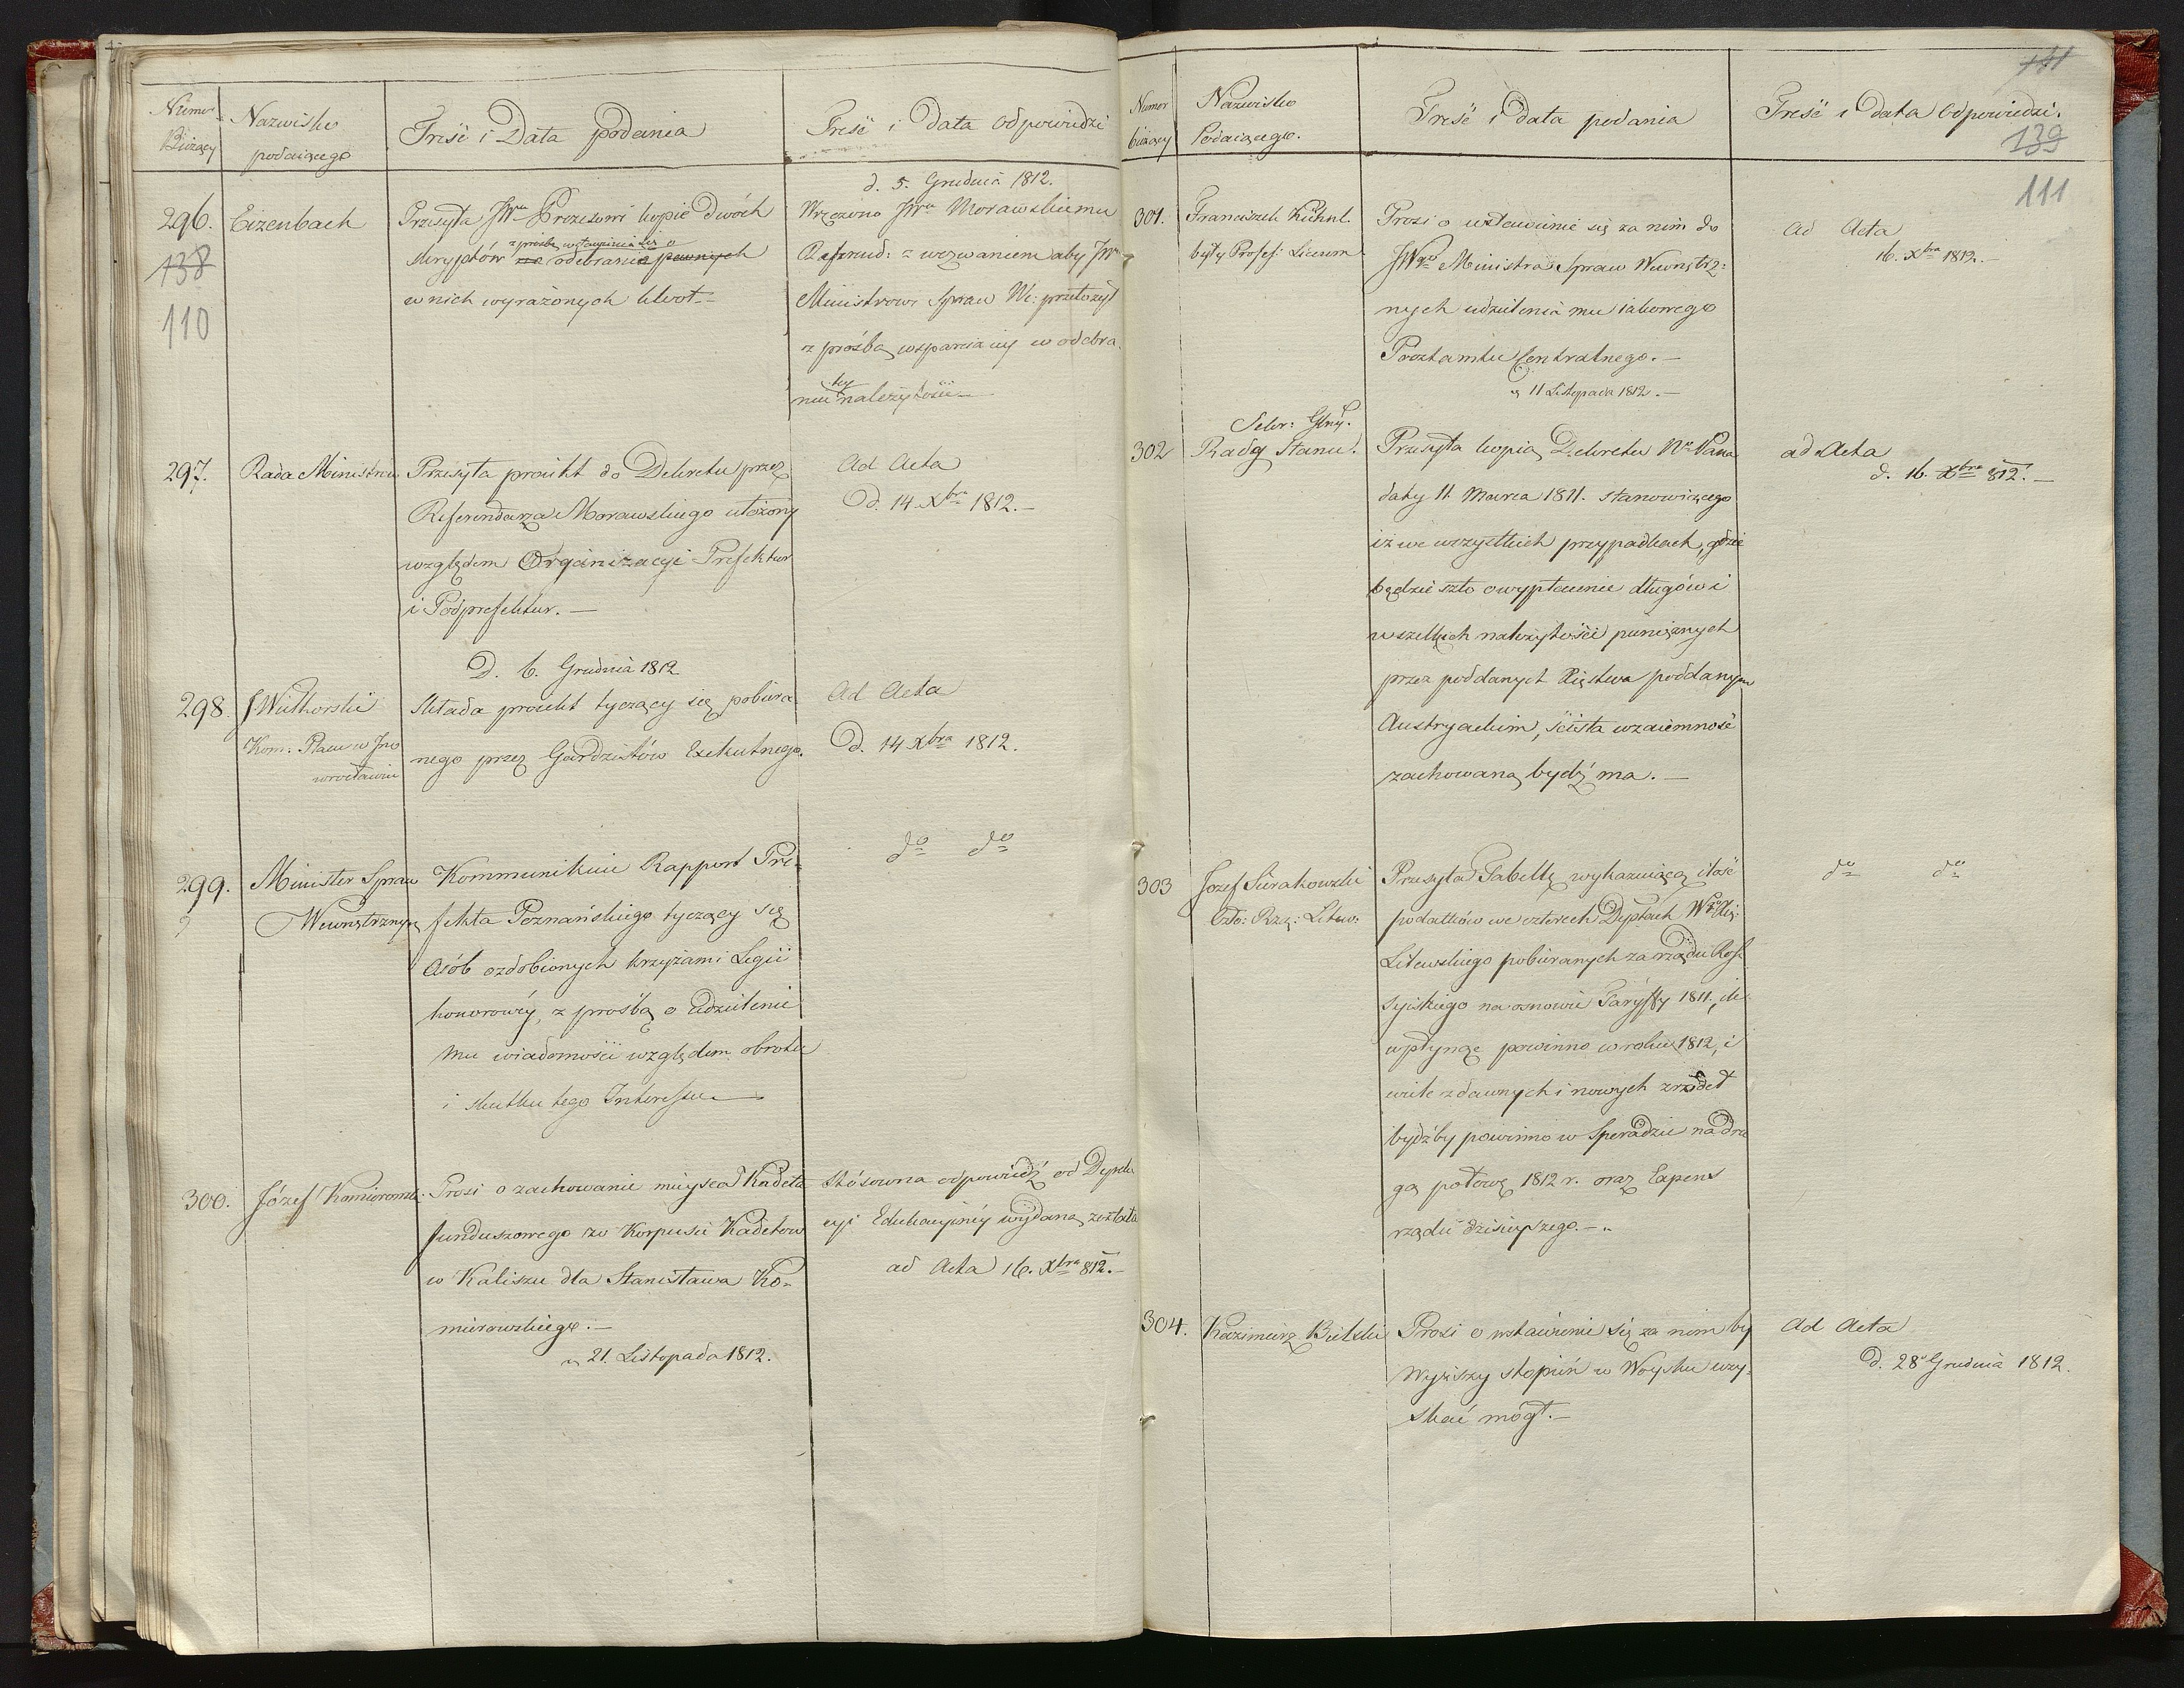 Numer Bieżący
Nazwisko podaiącego
Treść i Data podania
Treść i data odpowiedzi
296.
138
110
Eizenbach
Przesyła JW. Prezesowi kopie dwóch
z prośbą wstawienia się o
skryptów na odebranie pewnych
w nich wyrażonych kwot.
d. 5. Grudnia 1812.
Wręczono JWu Morawskiemu
Referend: z wezwaniem aby JWu
Ministrowi Spraw We: przełożył
z prośbą wsparcia iey w odebra
tey
niu należytości
297.
Rada Ministrów
Przesyła proiekt do Dekretu przez
Referendarza Morawskiego ułożony
względem Organizacyi Prefektur
i Podprefektur. —
Ad Acta
D. 14. Xbra 1812. —
D. 6. Grudnia 1812
298.
Kom: Placu w Ino
wrocławiu
Składa proiekt tyczący się pobiera
nego przez Gardzistów Exekutnego.
Ad Acta
D. 14 Xbra 1812.
299.
Minister Spraw
Wewnętrznych
Kommunikuie Rapport Pre-
fekta Poznańskiego tyczący się
Osób ozdobionych krzyżami Legii
honorowéy, z prośbą o Udzielenie
mu wiadomości względem obrotu
i skutku tego Interessu —
do do
300.
Józef Komierows:
Prosi o zachowanie mieysca Kadeta
funduszowego w Korpusie Kadetów
w Kaliszu dla Stanisława Ko-
mierowskiego. —
21. Listopada 1812.
Stósowna odpowiedź od Dyrek
cyi Edukacyinéy wydaną została
ad Acta 16. Xbra 812. —
Numer bieżący
Nazwisko Podaiącego.
Treść i data podania
Treść i data Odpowiedzi.
141
139
111
301.
Franciszek Kühnl.
były Profess: Liceum
Prosi o wstawienie się za nim do
JWgo Ministra Spraw Wewnętrz-
nych udzielenia mu iakowego
Pocztamtu Centralnego. —
11 Listopada 1812. —
ad Acta
16. Xbra 1812. —
302
Sekr: Glny.
Rady Stanu.
Przesyła kopią Dekretu Nro Pana
daty 11. Marca 1811. stanowiącego
iż we wszystkich przypadkach, gdzie
będzie szło o wypłacenie długów i
wszelkich należytości pieniężnych
przez poddanych Xięstwa poddanym
Austryackim, ścisła wzaiemność
zachowaną bydź ma. —
ad Acta
d. 16. Xbra 812. —
303
Jozef Sierakowski
Czło: Rzą: Litew:
Przesyła Tabellę wykazuiącą ilość
podatków we czterech Dyptach Wgo Xię:
Litewskiego pobieranych za rządu Ros-
syiskiego na osnowie Taryffy 1811., ile
wpłynąć powinno w roku 1812, i
wiele z dawnych i nowych zrzódeł
bydźby powinno w Speradzie na dru
gą połowę 1812 r. oraz Expens
rządu dzisieyszego. —
do do
304.
Kazimierz Bielski
Prosi o wstawienie się za nim by
Wyższy stopień w Woysku uzy-
skać mógł. —
Ad Acta
d. 28o Grudnia 1812.